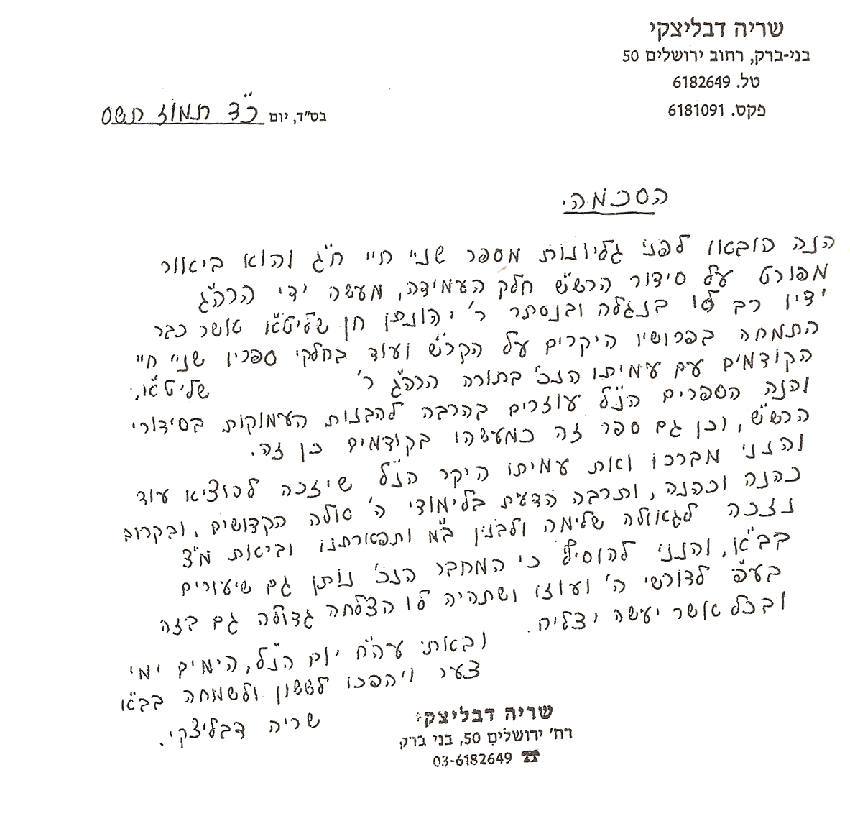 שריה דבליצקי
בני-ברק, רחוב ירושלים 50
טל. 6182649
פקס. 6181091
בס"ד, יום כ"ד תמוז תשס
הסכמה.
הנה הובאו לפני גליונות מספר שני חיי ח"ג והוא ביאור
מפורט על סידור הרש"ש חלק העמידה, מעשה ידי הרה"ג
ידיו רב לו בנגלה ובנסתר ר' יהונתן חן שליט"א אשר כבר
התמחה בפרושיו היקרים על הקר"ש ועוד בחלקי ספריו שני חיי
הקודמים עם עמיתו הנכ' בתורה הרה"ג ר' שליט"א,
והנה הספרים הנ"ל עוזרים בהרבה להבנות העמוקות בסידורי
הרש"ש, וכן גם ספר זה כמעשהו בקודמים כן זה.
והנני מברכו ואת עמיתו היקר הנ"ל שיזכה להוציא עוד
כהנה וכהנה, ותרבה הדעת בלימודי ה' אולה הקדושים, ובקרוב
נזכה לגאולה שלימה ולבנין ב"מ ותפארתנו וביאת מ"צ
בב"א, והנני להוסיף כי המחבר הנכ' נותן גם שיעורים
בע"פ לדורשי ה' ועוזו ושתהיה לו הצלחה גדולה גם בזה
ובכל אשר יעשה יצליח.
ובאתי עה"ח יום הנ"ל, הימים ימי
צער ויהפכו לששון ולשמחה בב"א
שריה דבליצקי.
שריה דבליצקי
רח' ירושלים 50, בני ברק
☎ 03-6182649